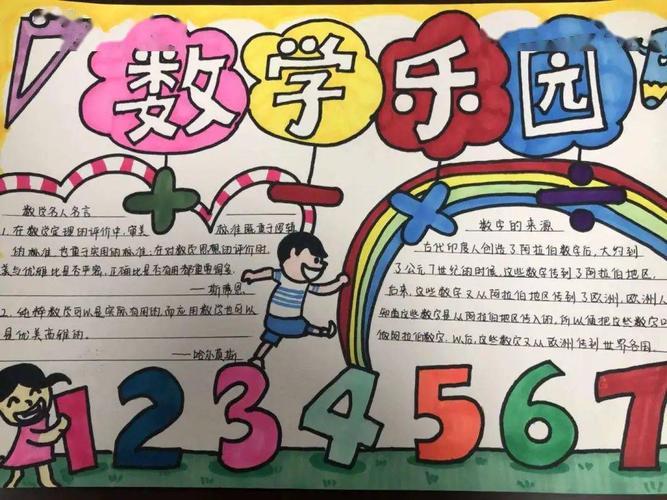 数学乐园
+ − × ÷
数学名人名言
1. 在数学定理的评价中，审美
标准既重于逻辑
的标准，也重于实用的标准：在对数学思想的评价时，
美与优雅比是否严密、正确比是否有用都重要得多。
——斯蒂恩
2. 纯粹数学可以是实际有用的，而应用数学也可以
是优美高雅的。
——哈尔莫斯
数字的来源
古代印度人创造了阿拉伯数字后，大约到
了公元7世纪的时候，这些数字传到了阿拉伯地区，
后来，这些数字又从阿拉伯地区传到了欧洲，欧洲人
知道这些数字是从阿拉伯地区传入的，所以便把这些数字叫
做阿拉伯数字。以后，这些数字又从欧洲传到世界各国。
1234567